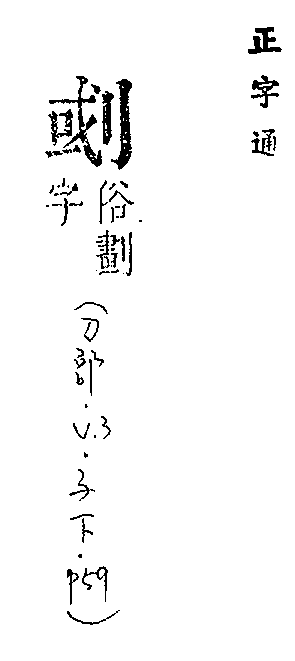 正字通
㓰
俗劃
字
(刀部·V.3·子下·P59)